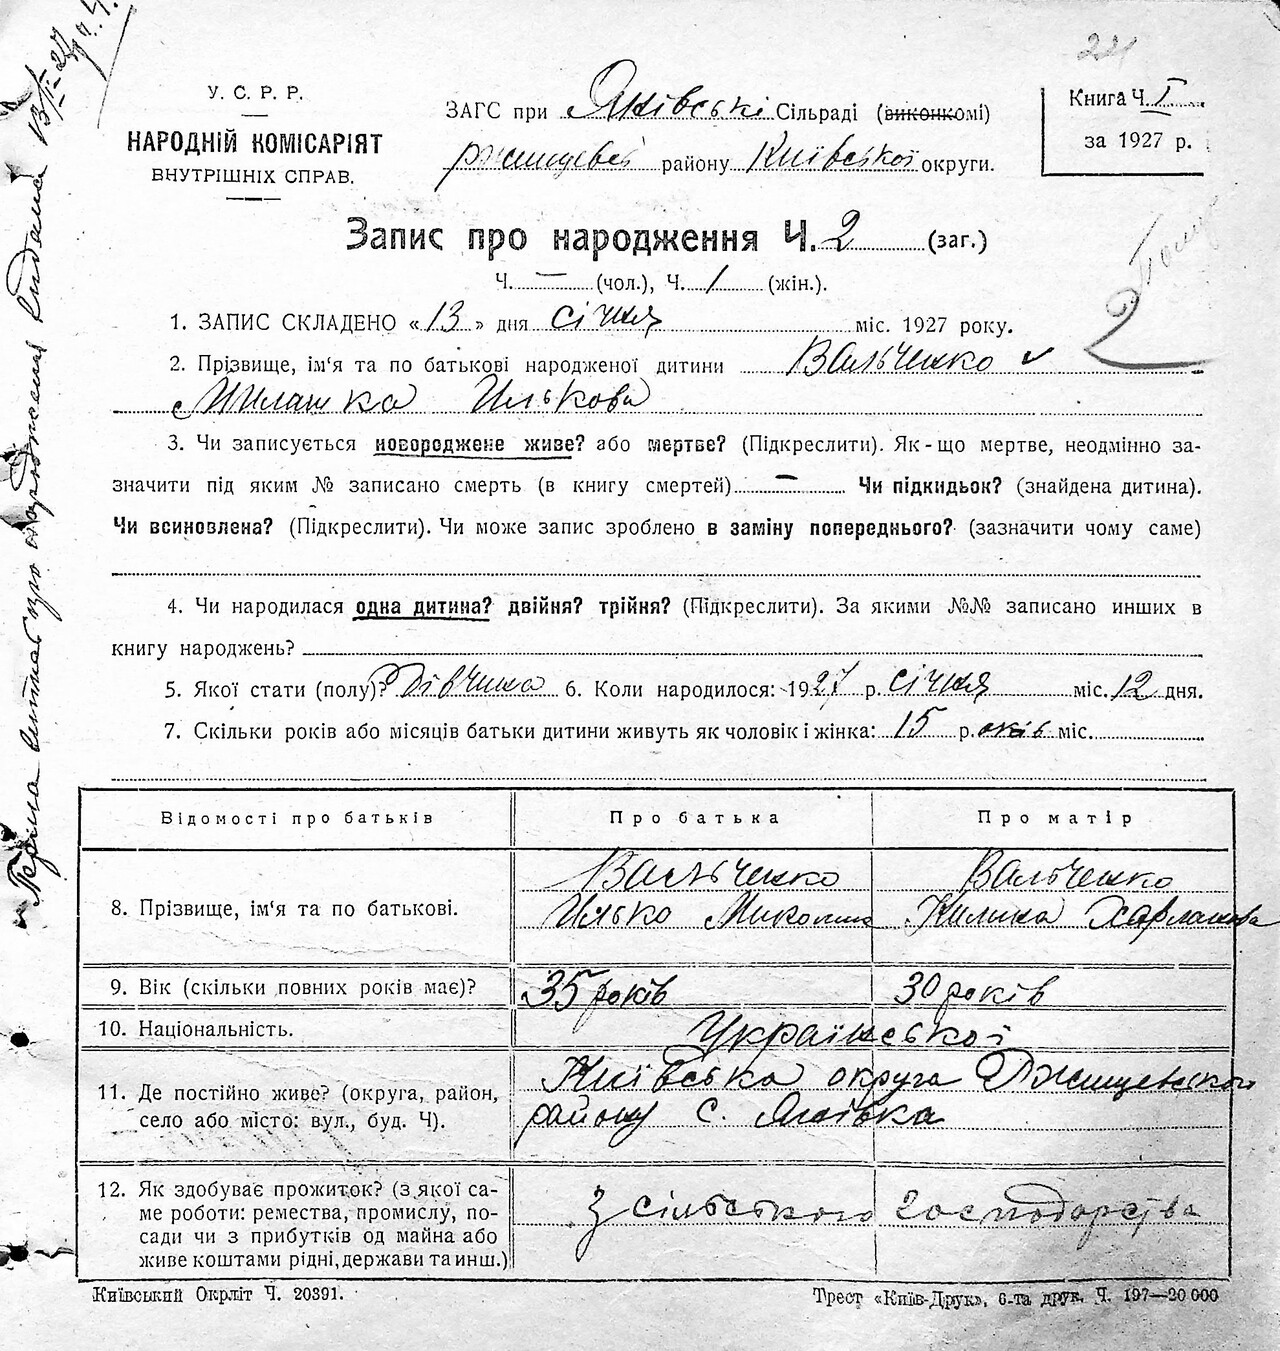 221
У. С. Р. Р.
НАРОДНІЙ КОМІСАРІЯТ
ВНУТРІШНІХ СПРАВ.
ЗАГС при Янівські Сільраді (виконкомі)
ржищевсі району Київської округи.
Книга Ч. I
за 1927 р.
Запис про народження Ч. 2 (заг.)
Ч. — (чол.), Ч. 1 (жін.).
2
1. ЗАПИС СКЛАДЕНО «13» дня січня міс. 1927 року.
2. Прізвище, ім'я та по батькові народженої дитини Вальченко
Милашка Илькова
3. Чи записується новороджене живе? або мертве? (Підкреслити). Як-що мертве, неодмінно за-
значити під яким № записано смерть (в книгу смертей) — Чи підкидьок? (знайдена дитина).
Чи всиновлена? (Підкреслити). Чи може запис зроблено в заміну попереднього? (зазначити чому саме)
4. Чи народилася одна дитина? двійня? трійня? (Підкреслити). За якими №№ записано инших в
книгу народжень?
5. Якої стати (полу)? Дівчина 6. Коли народилося: 1927 р. січня міс. 12 дня.
7. Скільки років або місяців батьки дитини живуть як чоловік і жінка: 15 р.оків міс.
Відомості про батьків Про батька Про матір
8. Прізвище, ім'я та по батькові.
Вальченко Вальченко
Илько Килина
9. Вік (скільки повних років має)? 35 років 30 років
10. Національність. Української
11. Де постійно живе? (округа, район,
село або місто: вул., буд. Ч).
Київська округа Ржищевського
району с. Янівка
12. Як здобуває прожиток? (з якої са-
ме роботи: ремества, промислу, по-
сади чи з прибутків од майна або
живе коштами рідні, держави та инш.)
З сільського господарства
Київський Окрліт Ч. 20391.
Трест «Київ-Друк», 6-та друк. Ч. 197—20 000